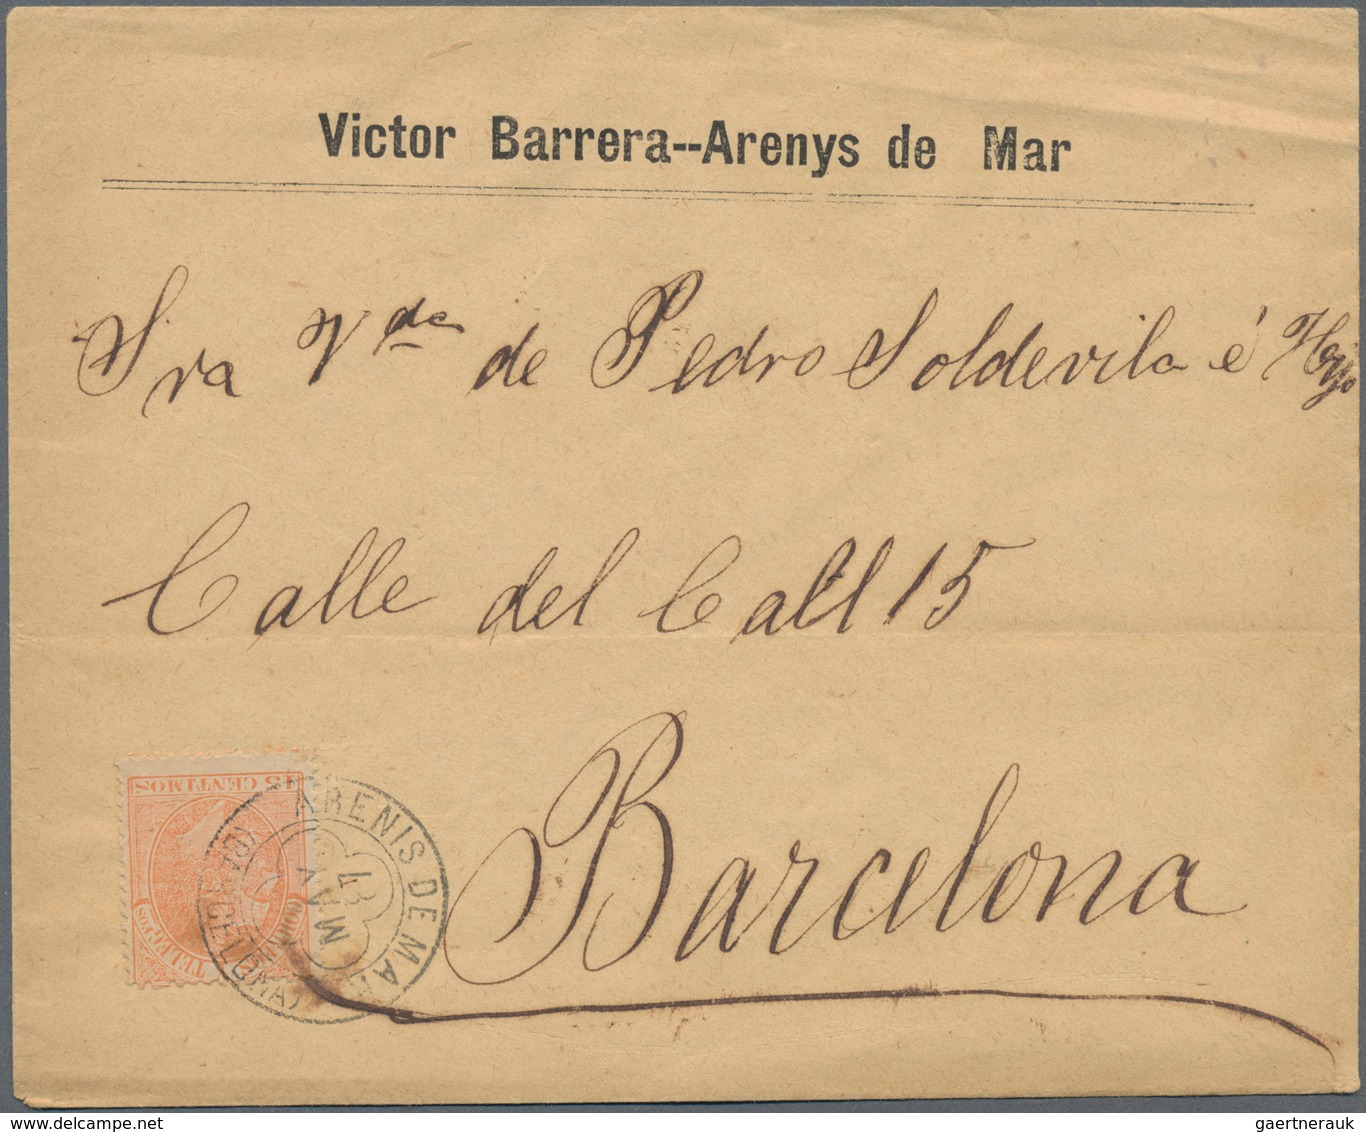 Victor Barrera--Arenys de Mar
Sra Vda de Pedro Soldevila é Hijo
Calle del Call 15
Barcelona
15 CENTIMOS
ARENIS DE MAR
MAY
(BARCELONA)
gaertnerauk @ delcampe.net